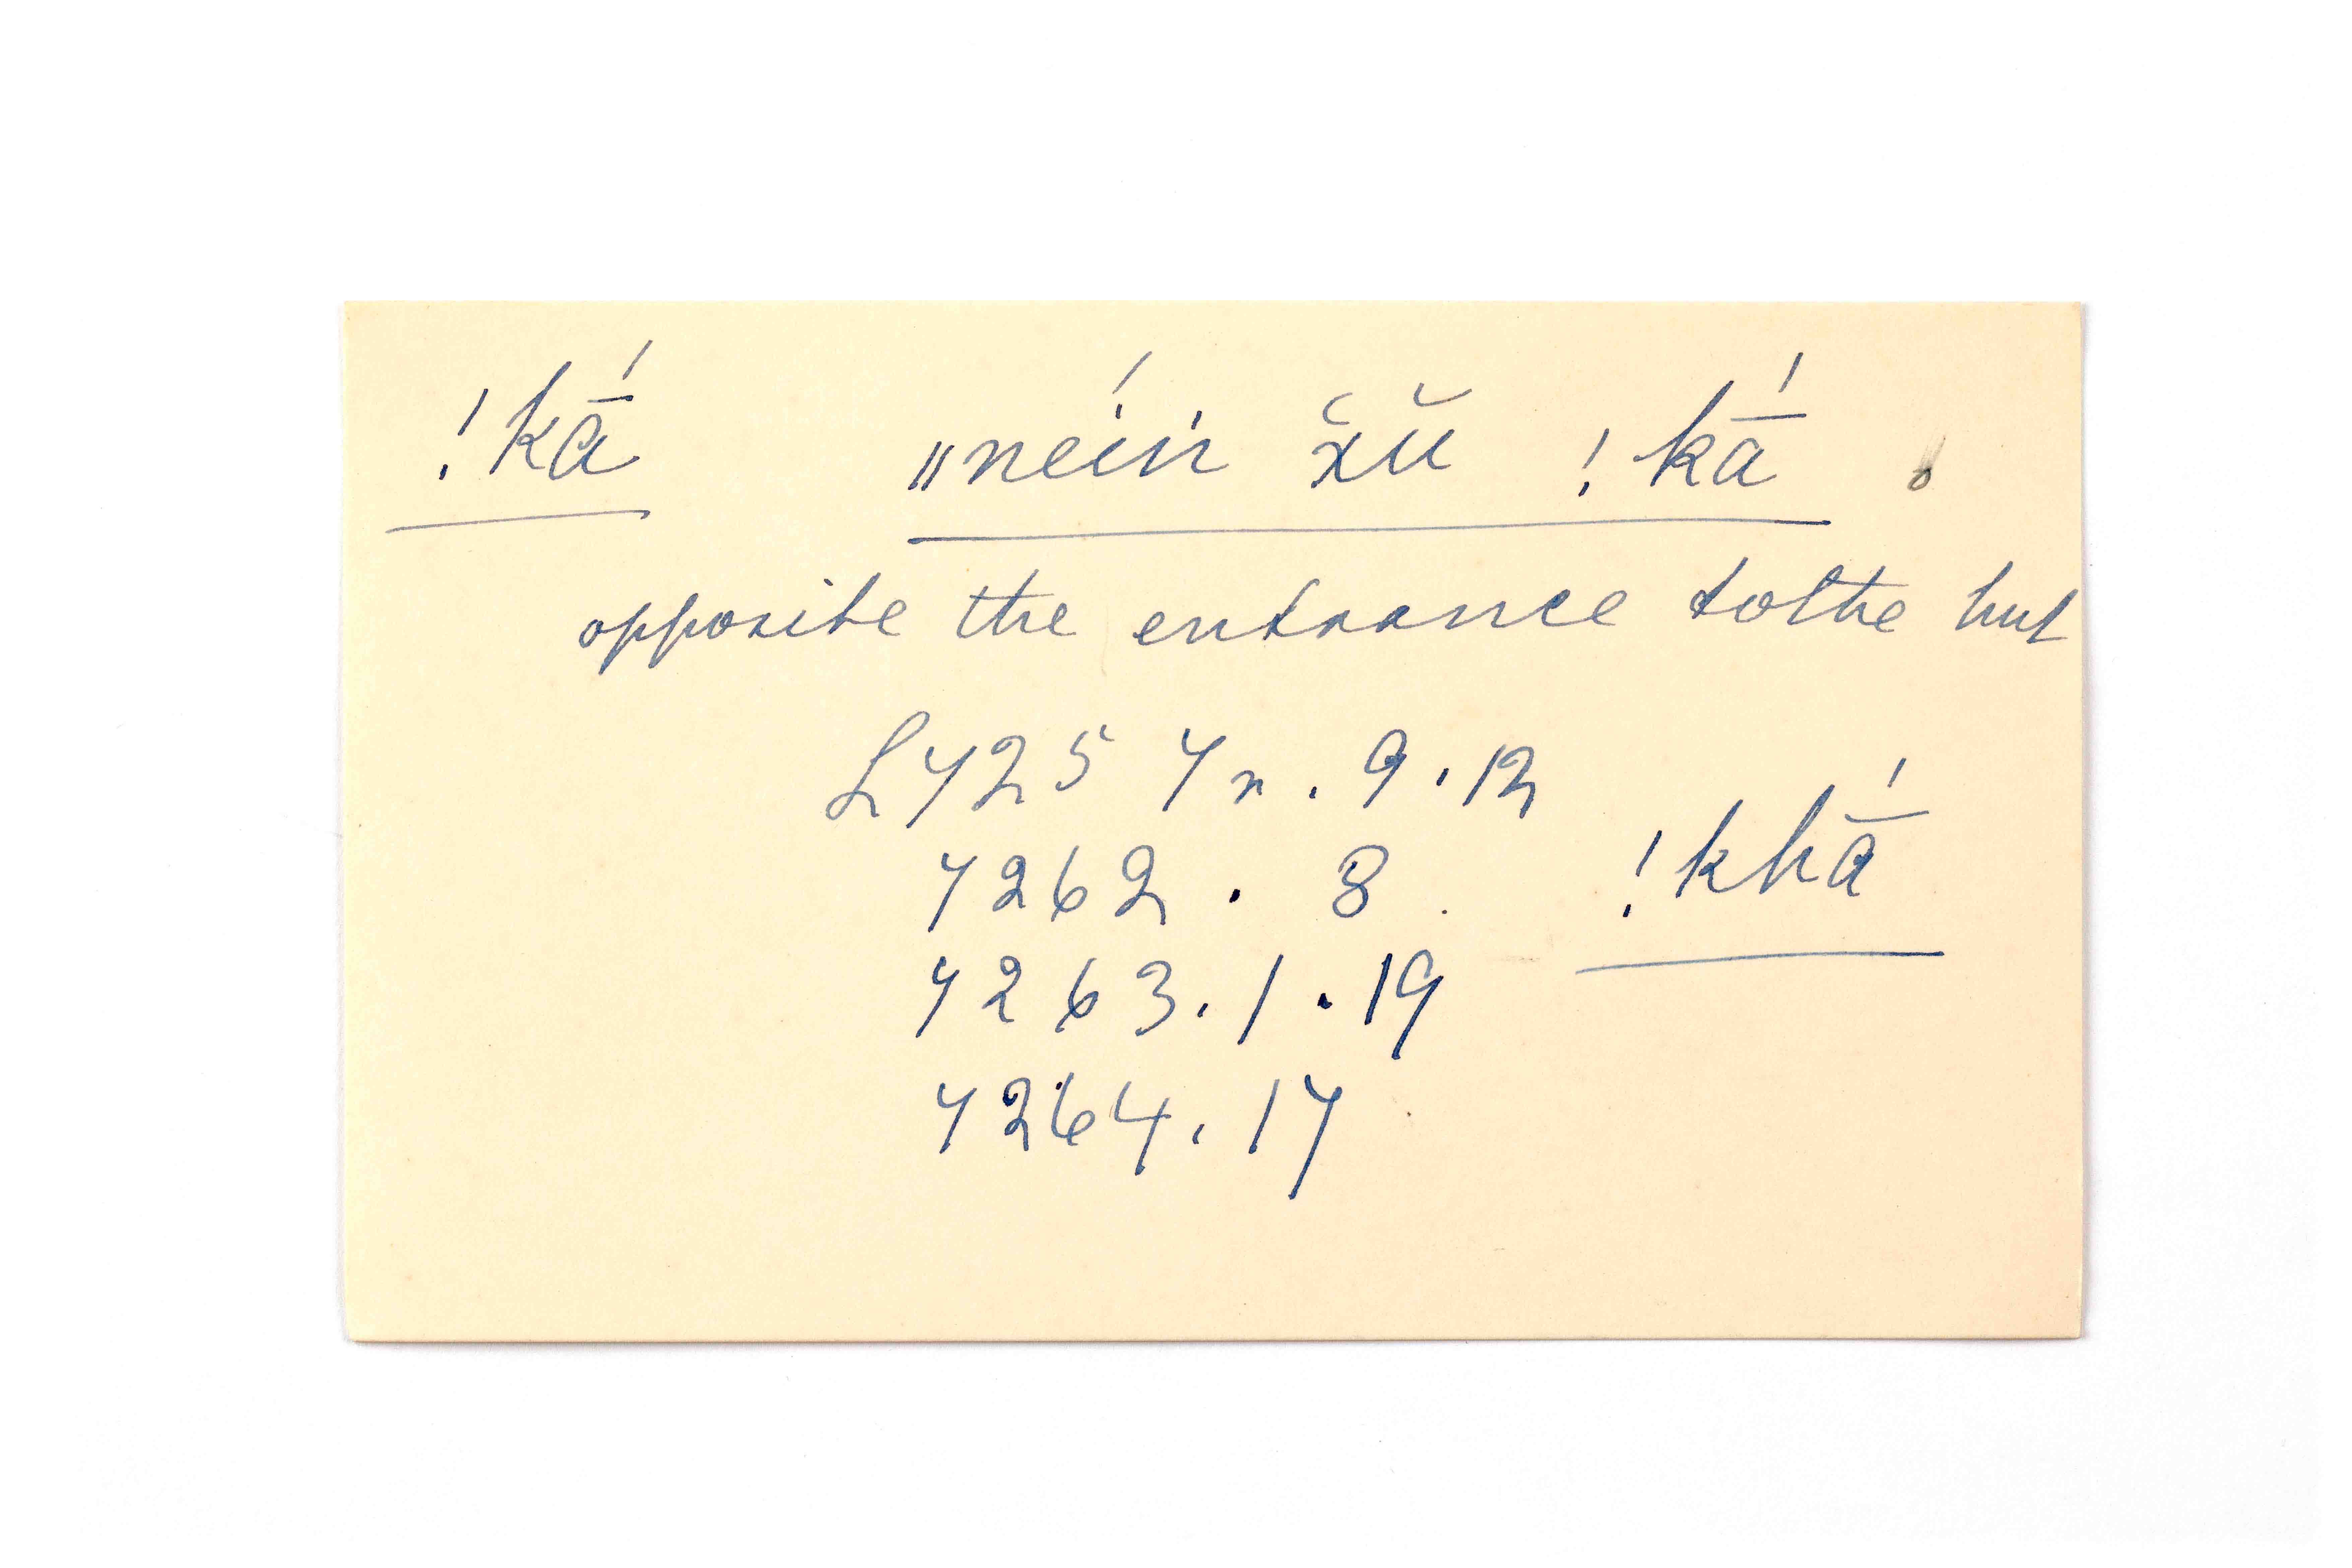 !kā́ ǁnéin x̆ŭ !kā́ .
opposite the entrance to the hut
L 7257r . 9 . 12
7262 . 8 . !khā́
7263 . 1 . 19
7264 . 17